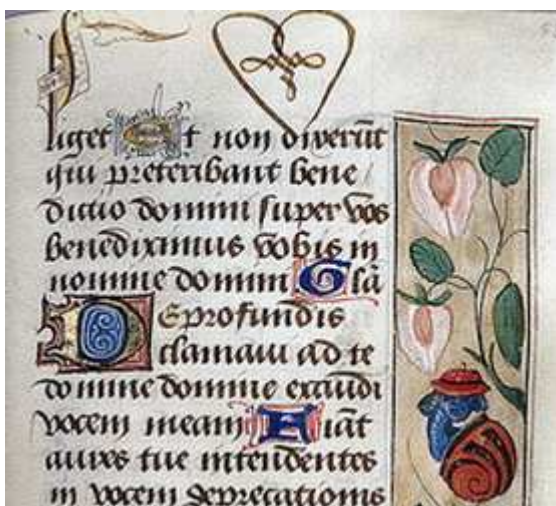 liget Et non dixerūt
qui preteribant bene
dictio domini super vos
benediximus vobis in
nomine domini Glā
DE profundis
clamaui ad te
domine domine exaudi
vocem meam Fiāt
aures tue intendentes
in vocem deprecationis